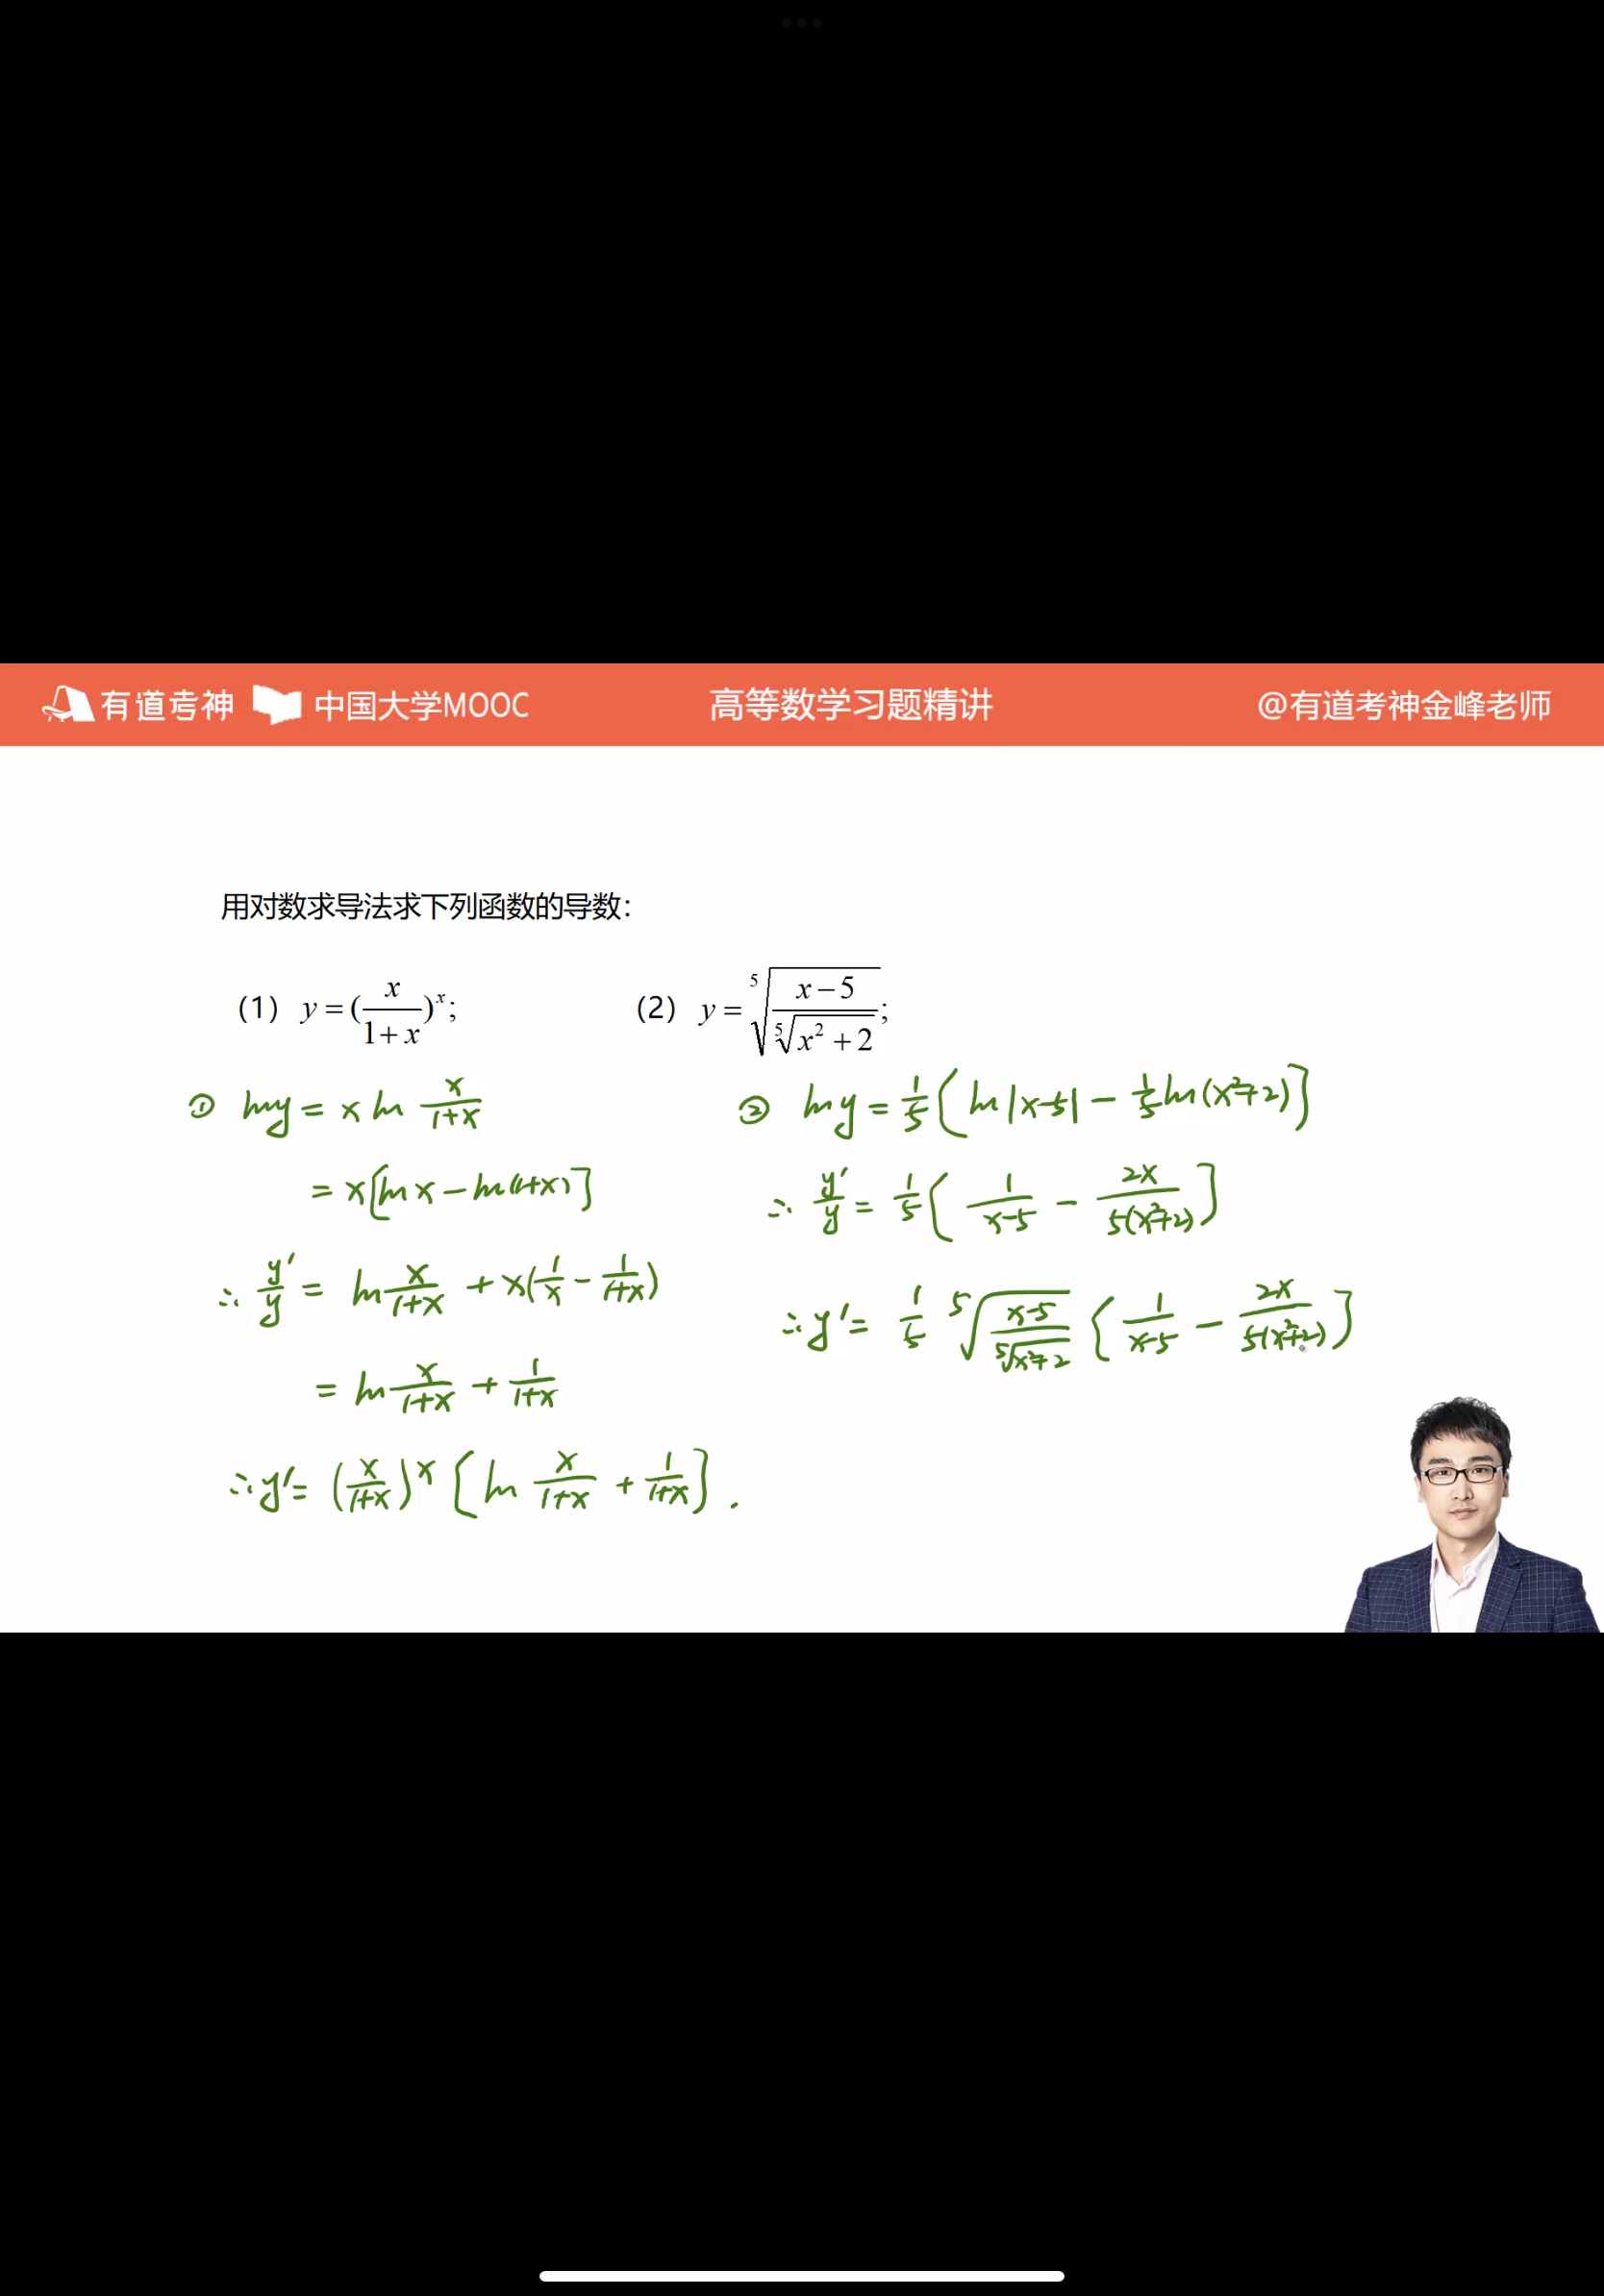 有道考神 中国大学MOOC 高等数学习题精讲 @有道考神金峰老师
用对数求导法求下列函数的导数：
（1） y = (x/(1+x))^x; （2） y = ⁵√((x−5)/⁵√(x²+2));
① ln y = x ln x/(1+x)
= x[ln x − ln(1+x)]
∴ y′/y = ln x/(1+x) + x(1/x − 1/(1+x))
= ln x/(1+x) + 1/(1+x)
∴ y′ = (x/(1+x))^x [ln x/(1+x) + 1/(1+x)].
② ln y = 1/5 [ln|x−5| − 1/5 ln(x²+2)]
∴ y′/y = 1/5 [1/(x−5) − 2x/(5(x²+2))]
∴ y′ = 1/5 ⁵√((x−5)/⁵√(x²+2)) [1/(x−5) − 2x/(5(x²+2))]